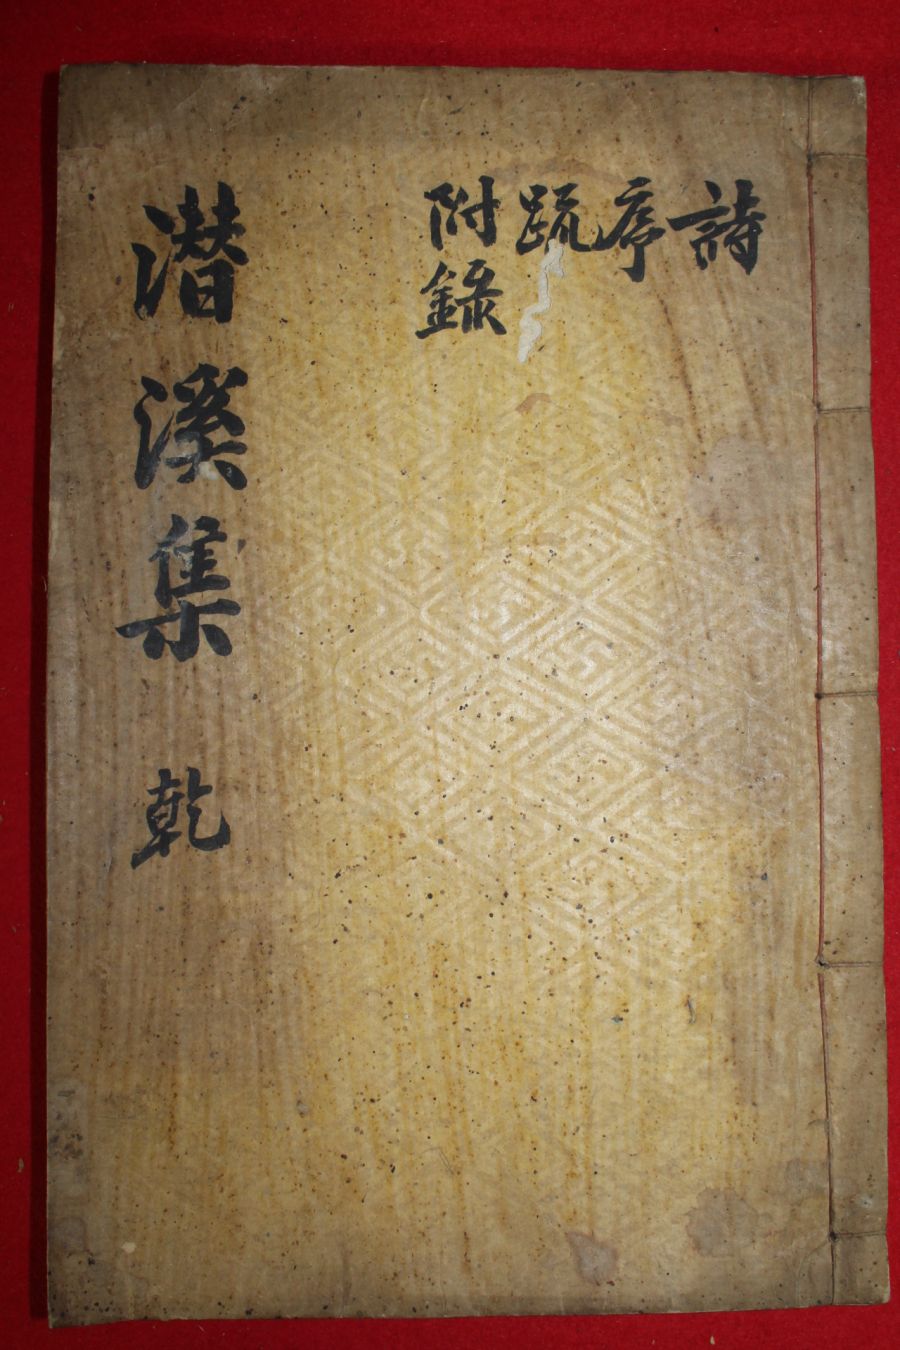 詩
序
䟽
附錄
潜溪集 乾